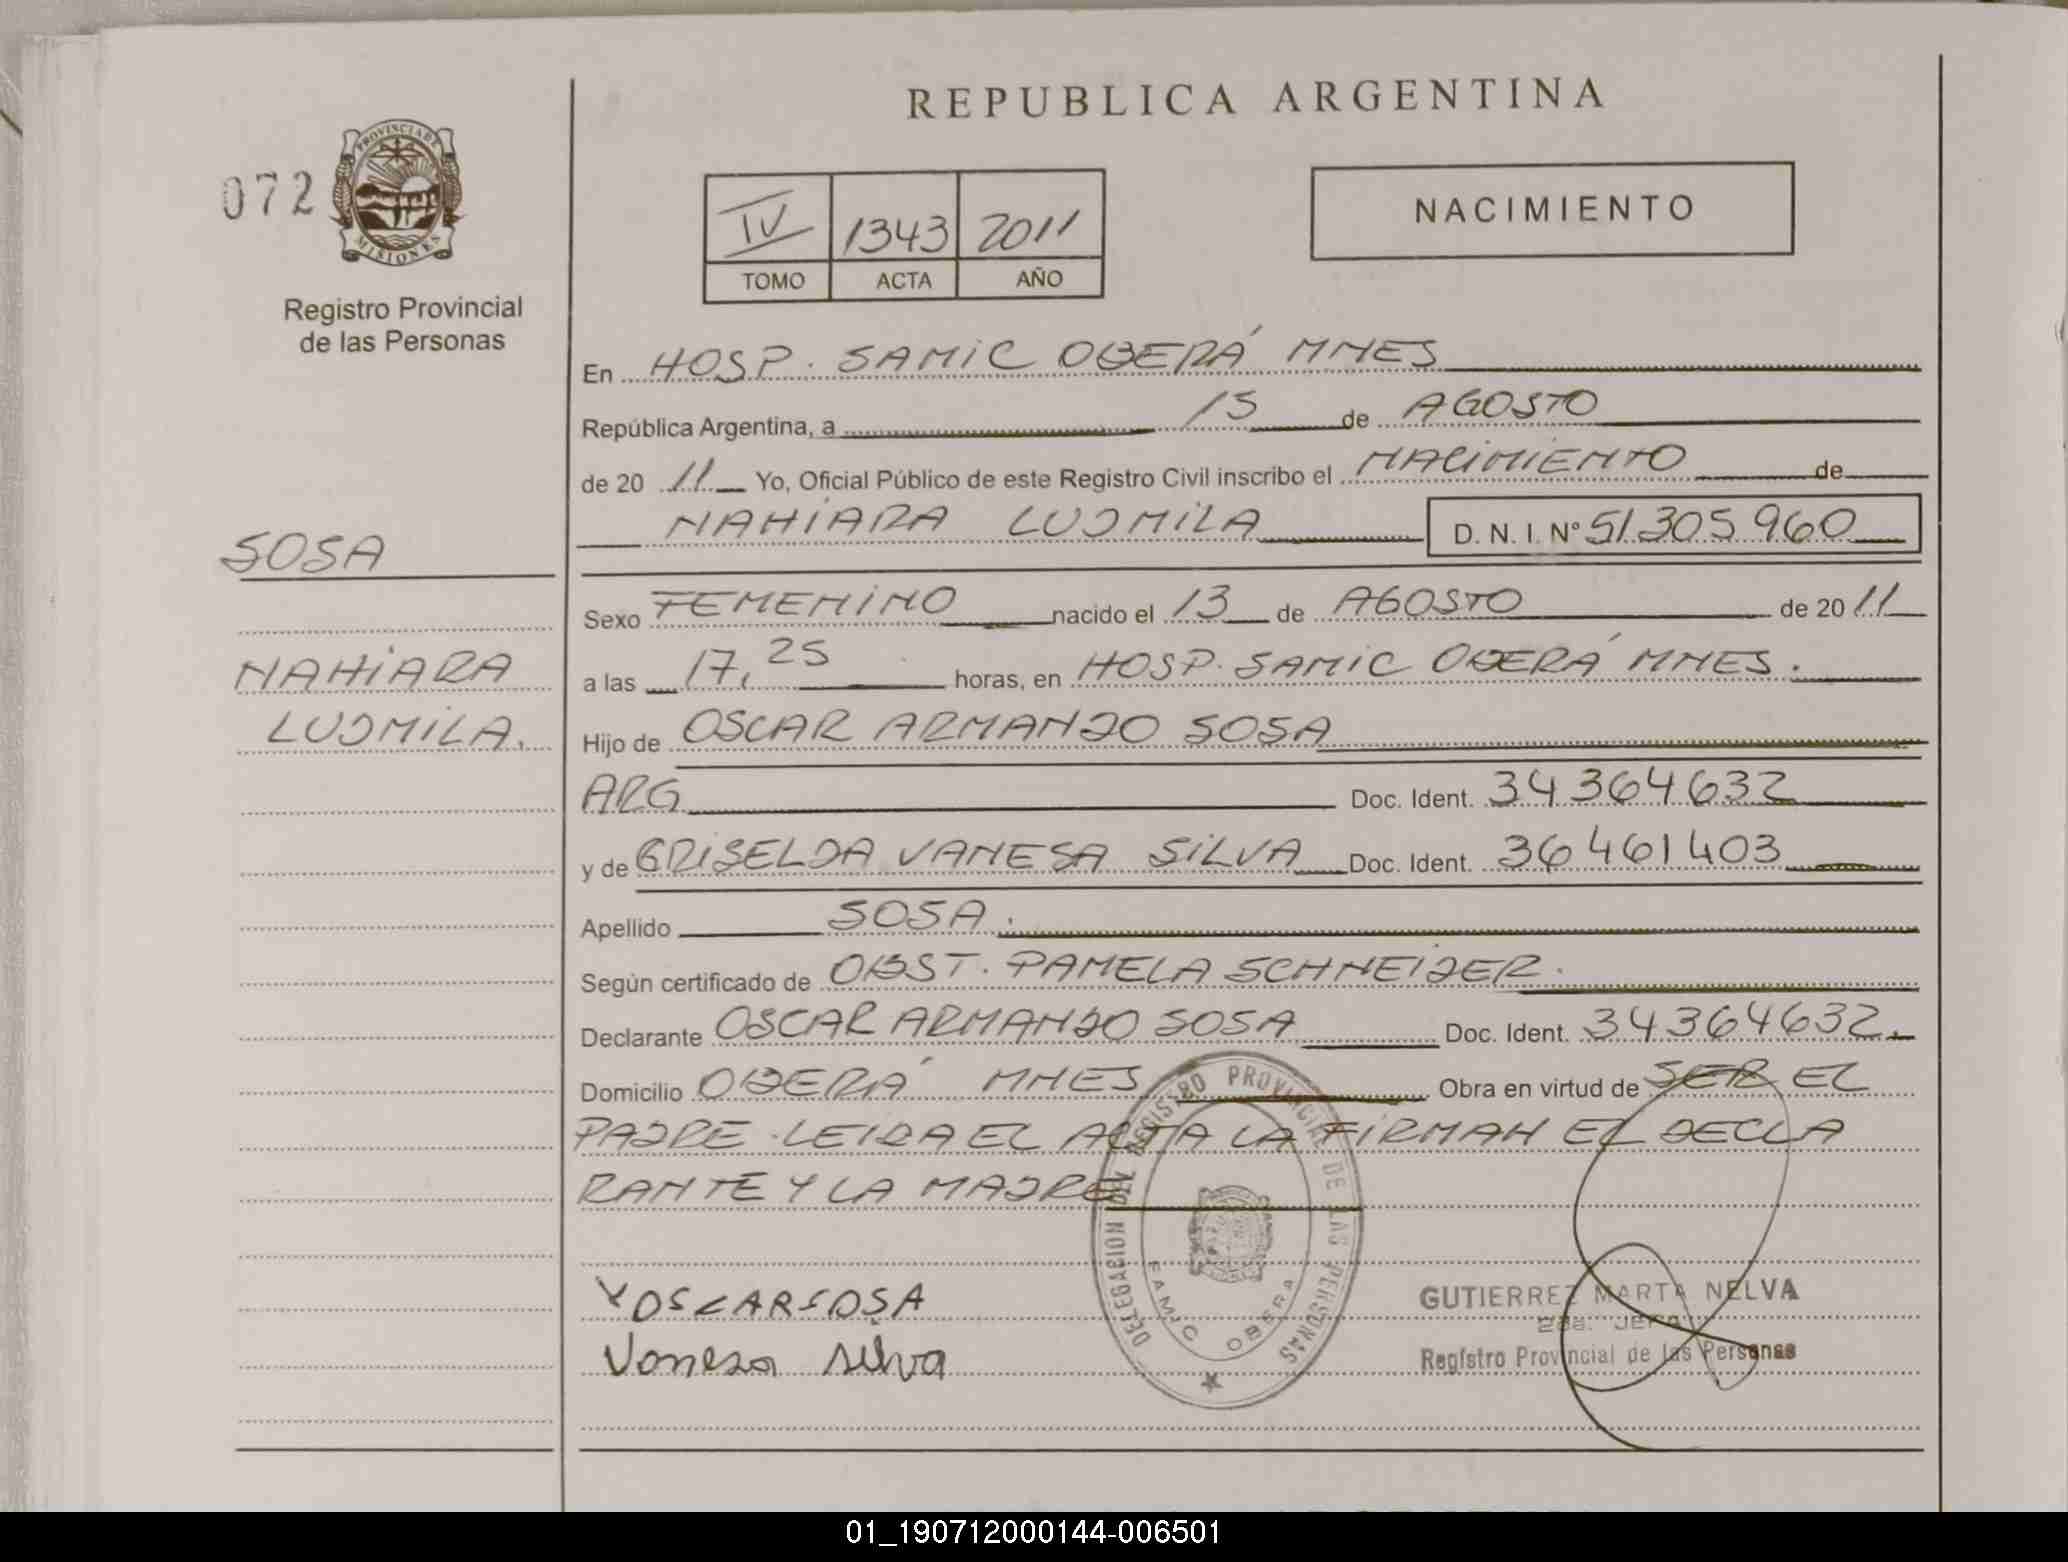 REPUBLICA ARGENTINA
072
PROVINCIA DE
MISIONES
Registro Provincial
de las Personas
IV 1343 2011
TOMO ACTA AÑO
NACIMIENTO
En HOSP. SAMIC OBERÁ MNES
República Argentina, a 15 de AGOSTO
de 20 11 Yo, Oficial Público de este Registro Civil inscribo el NACIMIENTO de
NAHIARA LUDMILA D. N. I. Nº 51.305.960
SOSA
NAHIARA
LUDMILA.
Sexo FEMENINO nacido el 13 de AGOSTO de 20 11
a las 17,25 horas, en HOSP. SAMIC OBERÁ MNES.
Hijo de OSCAR ARMANDO SOSA
ARG Doc. Ident. 34364632
y de GRISELDA VANESA SILVA Doc. Ident. 36461403
Apellido SOSA.
Según certificado de OBST. PAMELA SCHNEIDER.
Declarante OSCAR ARMANDO SOSA Doc. Ident. 34364632.
Domicilio OBERÁ MNES Obra en virtud de SER EL
PADRE. LEIDA EL ACTA LA FIRMAN EL DECLA
RANTE Y LA MADRE
DELEGACION DEL REGISTRO PROVINCIAL DE LAS PERSONAS
SAMIC OBERA
X OSCAR SOSA
Vanesa silva
GUTIERREZ MARTA NELVA
2da. JEFA
Registro Provincial de las Personas
01_190712000144-006501